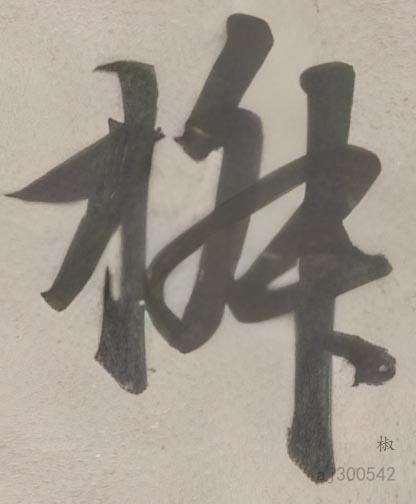 椒
椒
aj300542